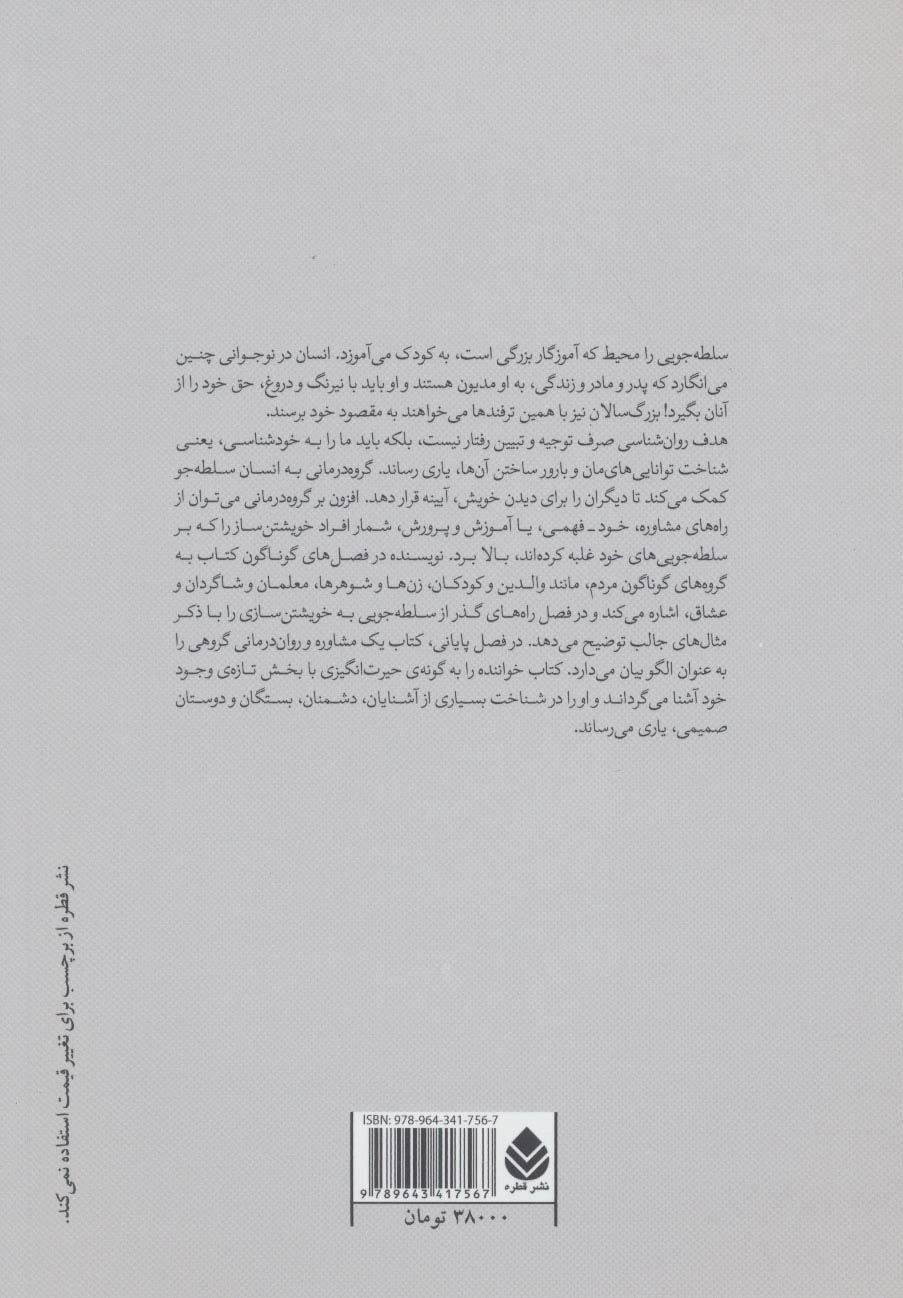 سلطه‌جویی را محیط که آموزگار بزرگی است، به کودک می‌آموزد. انسان در نوجوانی چنین
می‌انگارد که پدر و مادر و زندگی، به او مدیون هستند و او باید با نیرنگ و دروغ، حق خود را از
آنان بگیرد! بزرگ‌سالان نیز با همین ترفندها می‌خواهند به مقصود خود برسند.
هدف روان‌شناسی صرف توجیه و تبیین رفتار نیست، بلکه باید ما را به خودشناسی، یعنی
شناخت توانایی‌های‌مان و بارور ساختن آن‌ها، یاری رساند. گروه‌درمانی به انسان سلطه‌جو
کمک می‌کند تا دیگران را برای دیدن خویش، آیینه قرار دهد. افزون بر گروه‌درمانی می‌توان از
راه‌های مشاوره، خود ـ فهمی، یا آموزش و پرورش، شمار افراد خویشتن‌ساز را که بر
سلطه‌جویی‌های خود غلبه کرده‌اند، بالا برد. نویسنده در فصل‌های گوناگون کتاب به
گروه‌های گوناگون مردم، مانند والدین و کودکان، زن‌ها و شوهرها، معلمان و شاگردان و
عشاق، اشاره می‌کند و در فصل راه‌های گذر از سلطه‌جویی به خویشتن‌سازی را با ذکر
مثال‌های جالب توضیح می‌دهد. در فصل پایانی، کتاب یک مشاوره و روان‌درمانی گروهی را
به عنوان الگو بیان می‌دارد. کتاب خواننده را به گونه‌ی حیرت‌انگیزی با بخش تازه‌ی وجود
خود آشنا می‌گرداند و او را در شناخت بسیاری از آشنایان، دشمنان، بستگان و دوستان
صمیمی، یاری می‌رساند.
نشر قطره از برچسب برای تغییر قیمت استفاده نمی‌کند.
ISBN: 978-964-341-756-7
9 789643 417567
نشر قطره
۳۸۰۰۰ تومان